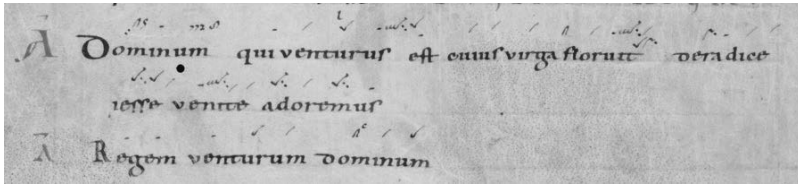 A Dominum qui venturus est cuius virga floruit de radice
iesse venite adoremus
A Regem venturum dominum